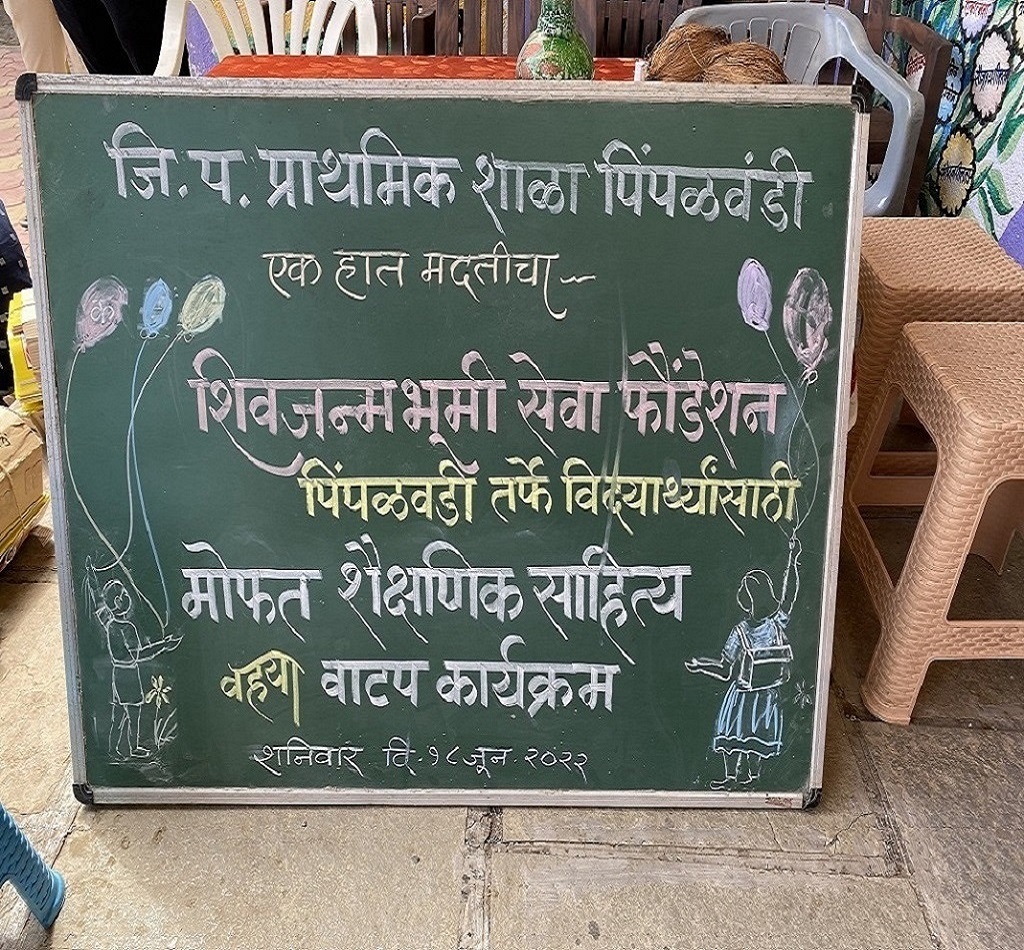 जि. प. प्राथमिक शाळा पिंपळवंडी
एक हात मदतीचा--
शिवजन्मभूमी सेवा फौंडेशन
पिंपळवंडी तर्फे विद्यार्थ्यांसाठी
मोफत शैक्षणिक साहित्य
वह्या वाटप कार्यक्रम
शनिवार दि. १८ जून. २०२२
क